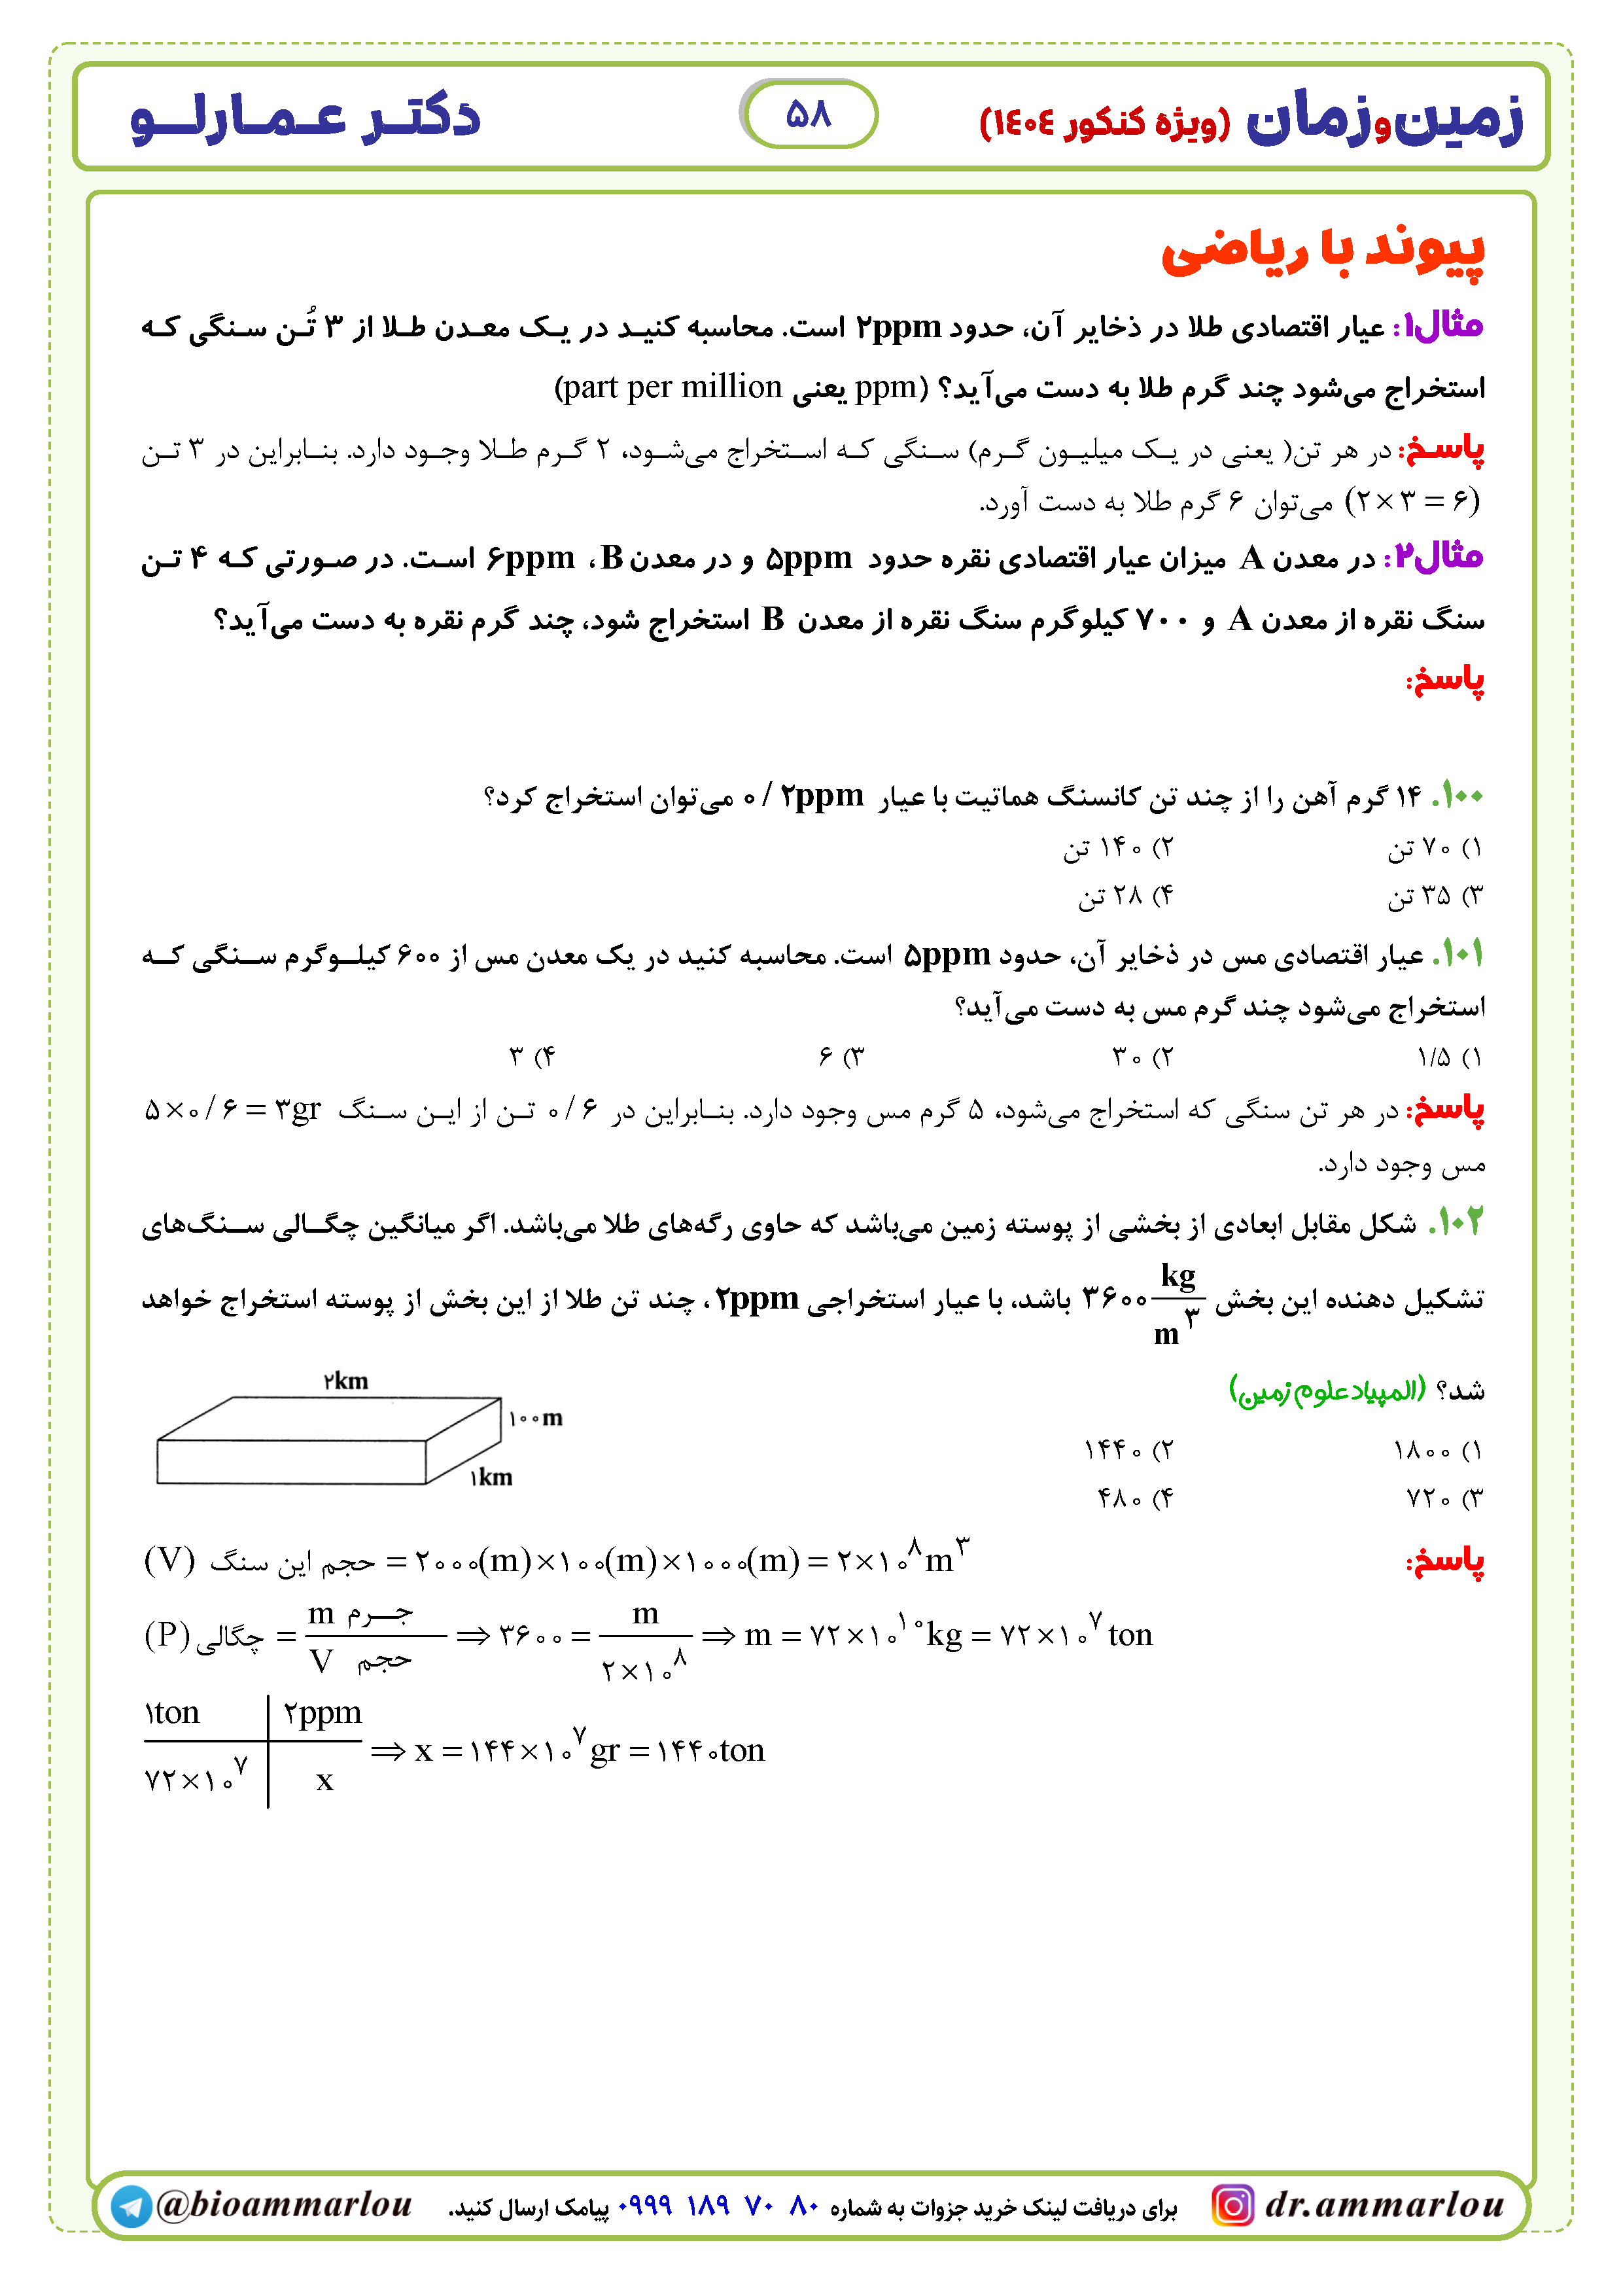 زمین‌و‌زمان (ویژه کنکور ۱۴۰۴)
۵۸
دکتـر عـمـارلــو
پیوند با ریاضی
مثال۱: عیار اقتصادی طلا در ذخایر آن، حدود ۲ppm است. محاسبه کنیـد در یـک معـدن طـلا از ۳ تُـن سـنگی کـه
استخراج می‌شود چند گرم طلا به دست می‌آید؟ (ppm یعنی part per million)
پاسـخ: در هر تن( یعنی در یـک میلیـون گـرم) سـنگی کـه اسـتخراج می‌شـود، ۲ گـرم طـلا وجـود دارد. بنـابراین در ۳ تـن
(۲×۳=۶) می‌توان ۶ گرم طلا به دست آورد.
مثال۲: در معدن A میزان عیار اقتصادی نقره حدود ۵ppm و در معدن B، ۶ppm اسـت. در صـورتی کـه ۴ تـن
سنگ نقره از معدن A و ۷۰۰ کیلوگرم سنگ نقره از معدن B استخراج شود، چند گرم نقره به دست می‌آید؟
پاسخ:
۱۰۰. ۱۴ گرم آهن را از چند تن کانسنگ هماتیت با عیار ۰/۲ppm می‌توان استخراج کرد؟
۱) ۷۰ تن ۲) ۱۴۰ تن
۳) ۳۵ تن ۴) ۲۸ تن
۱۰۱. عیار اقتصادی مس در ذخایر آن، حدود ۵ppm است. محاسبه کنید در یک معدن مس از ۶۰۰ کیلــوگرم ســنگی کــه
استخراج می‌شود چند گرم مس به دست می‌آید؟
۱) ۱/۵ ۲) ۳۰ ۳) ۶ ۴) ۳
پاسخ: در هر تن سنگی که استخراج می‌شود، ۵ گرم مس وجود دارد. بنـابراین در ۰/۶ تـن از ایـن سـنگ ۵×۰/۶=۳gr
مس وجود دارد.
۱۰۲. شکل مقابل ابعادی از بخشی از پوسته زمین می‌باشد که حاوی رگه‌های طلا می‌باشد. اگر میانگین چگــالی ســنگ‌های
تشکیل دهنده این بخش ۳۶۰۰ kg/m³ باشد، با عیار استخراجی ۲ppm، چند تن طلا از این بخش از پوسته استخراج خواهد
شد؟ (المپیاد علوم زمین)
۲km
۱۰۰m
۱km
۱) ۱۸۰۰ ۲) ۱۴۴۰
۳) ۷۲۰ ۴) ۴۸۰
پاسخ:
(V) حجم این سنگ = ۲۰۰۰(m)×۱۰۰(m)×۱۰۰۰(m) = ۲×۱۰^۸ m^۳
(P) چگالی = جــرم m / حجم V ⇒ ۳۶۰۰ = m / ۲×۱۰^۸ ⇒ m = ۷۲×۱۰^۱۰ kg = ۷۲×۱۰^۷ ton
۱ton | ۲ppm
۷۲×۱۰^۷ | x ⇒ x = ۱۴۴×۱۰^۷ gr = ۱۴۴۰ton
dr.ammarlou
برای دریافت لینک خرید جزوات به شماره ۸۰ ۷۰ ۱۸۹ ۰۹۹۹ پیامک ارسال کنید.
@bioammarlou